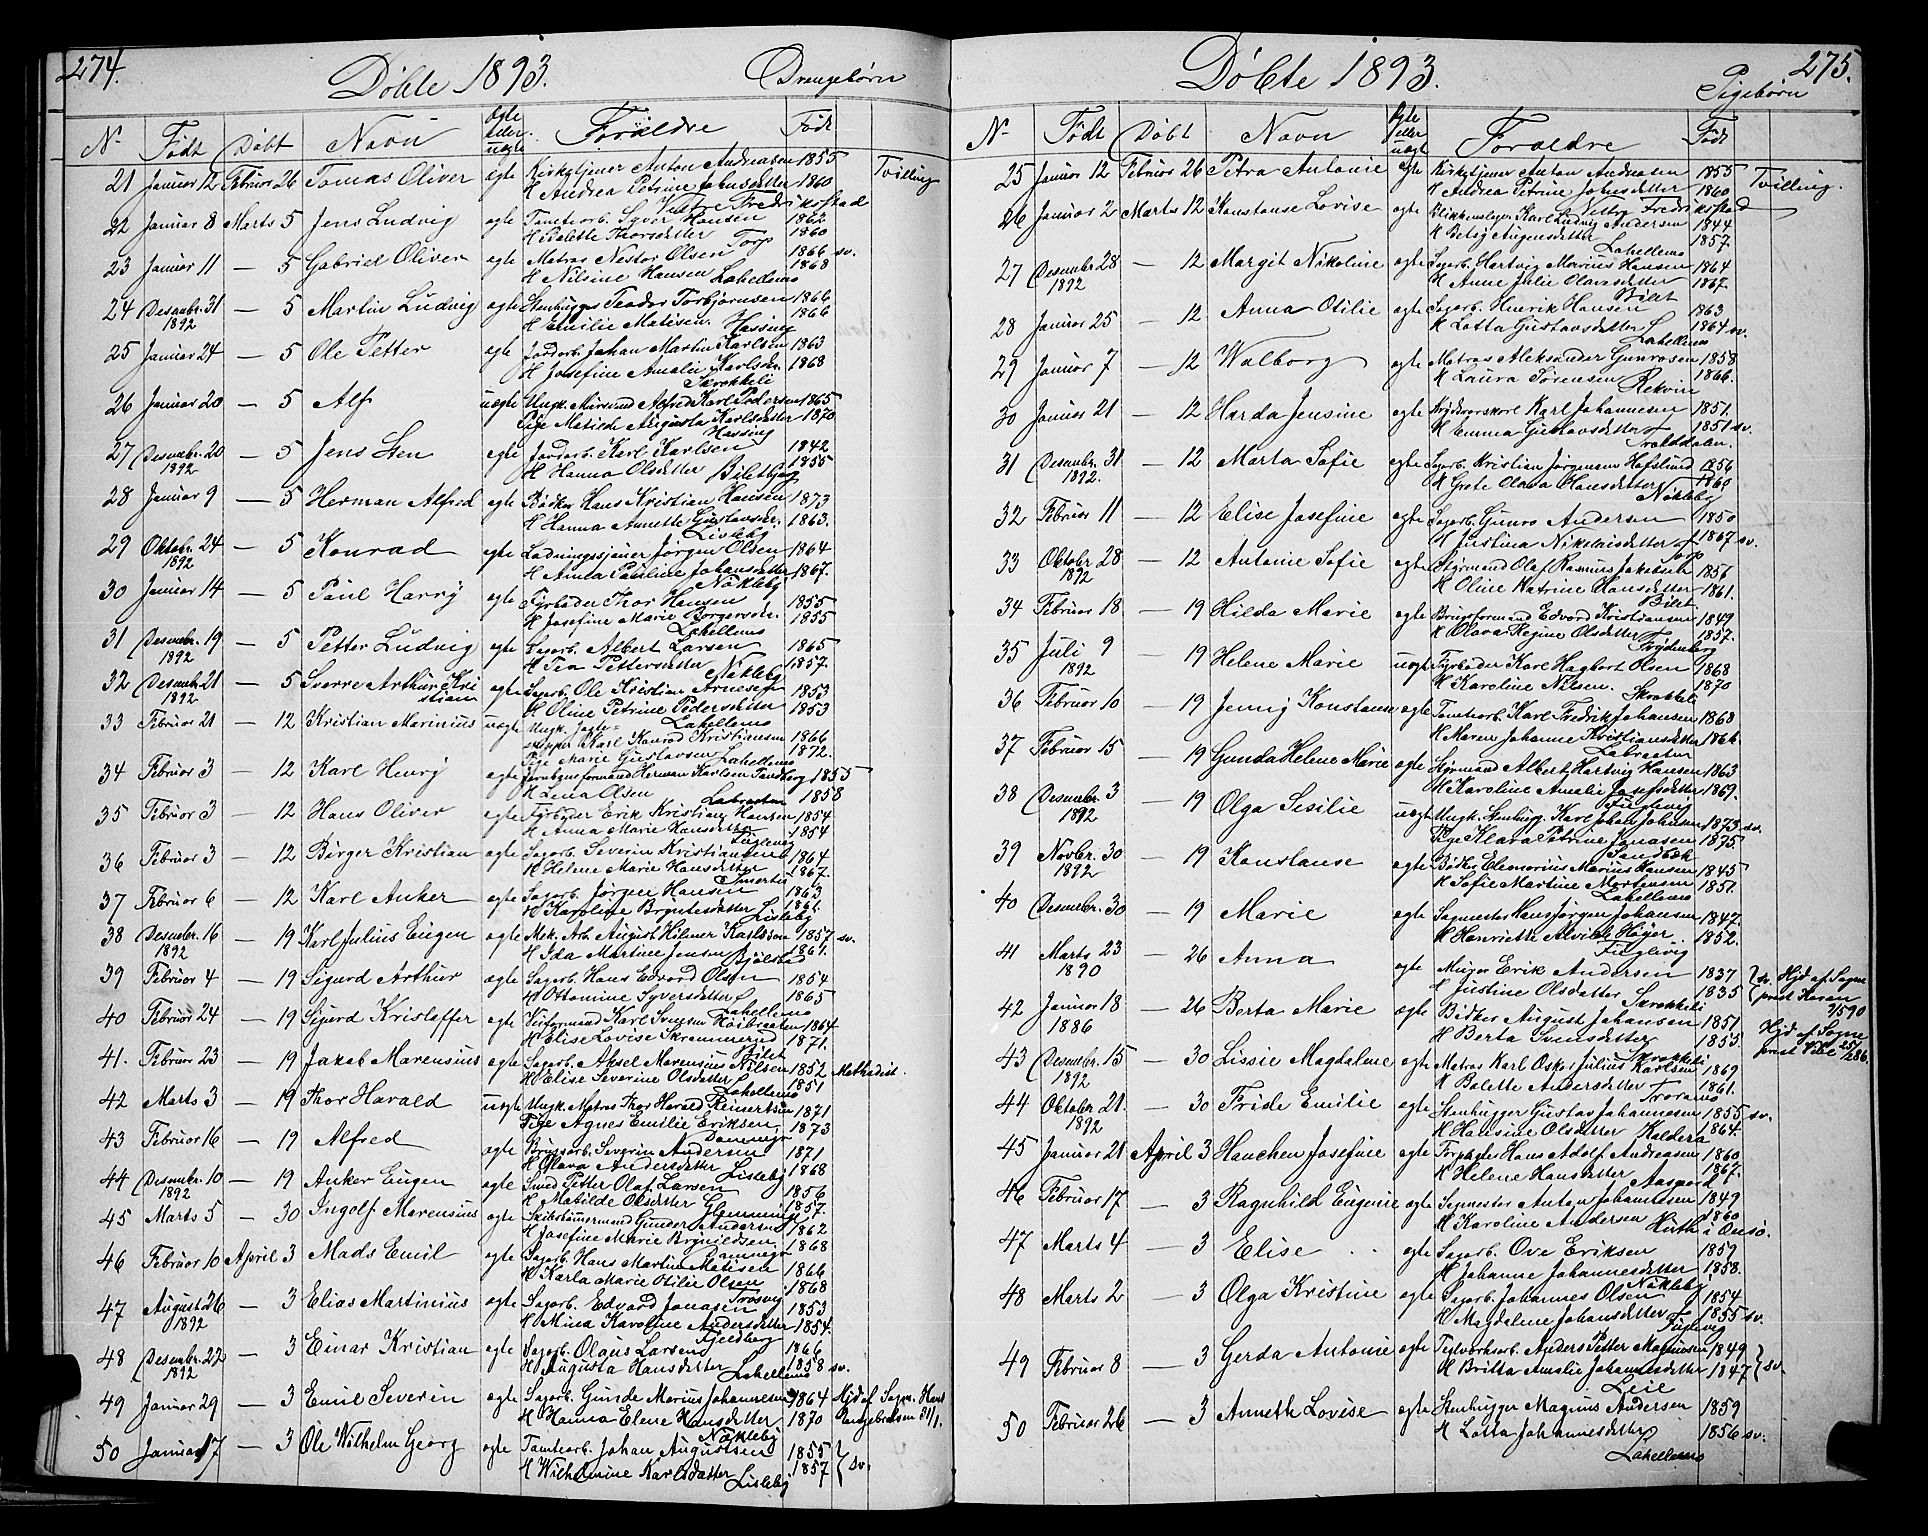 274.
Døbte 1893.
Drengebørn
No Født Døbt Navn Ægte eller uægte Forældre Født
21 Januar 12 Februar 26 Tomas Oliver ægte Kirketjener Anton Andreasen 1855 Tvilling
H Andrea Petrine Johnsdetter 1860
Vestre Fredrikstad
22 Januar 8 Marts 5 Jens Ludvig ægte Tomtearb. Syver Hansen 1862
H Palette Thorsdetter 1860
Torp
23 Januar 11 — 5 Gabriel Oliver ægte Matros Nestor Olsen 1866 sv.
H Nilsine Hansen 1868
Lahellemo
24 Desembr. 31 — 5 Martin Ludvig ægte Stenhugger Teodor Torbjørnsen 1866
1892 H Emilie Matisen 1866
Hassing
25 Januar 24 — 5 Ole Petter ægte Jordarb. Johan Martin Karlsen 1863
H Josefine Amalie Karlsdr. 1868
Skrokkeli
26 Januar 20 — 5 Alf uægte Ungk. Alfred Karl Pedersen 1865
Pige Matilde Augusta Karlsdetter 1870
Hassing
27 Desembr. 20 — 5 Jens Sten ægte Jordarb. Karl Karlsen 1842
1892 H Hanna Olsdetter 1855
28 Januar 9 — 5 Herman Alfred ægte Bødker Hans Kristian Hansen 1873
H Hanna Annette Gustavsdr. 1863.
Lisleby
29 Oktobr. 24 — 5 Konrad ægte Ladningssjauer Jørgen Olsen 1864
1892 H Amda Pauline Johansdetter 1867.
Nøkleby
30 Januar 14 — 5 Paul Harry ægte Fyrbøder Thor Hansen 1855
H Josefine Marie Borgersdr. 1855
Lahellemo
31 Desembr. 19 — 5 Petter Ludvig ægte Sagarb. Albert Larsen 1865
1892 H Tea Pettersdetter 1857
Nøkleby
32 Desembr. 21 — 5 Sverre Arthur Kristian ægte Sagarb. Ole Kristian Arnesen 1853
1892 H Oline Petrine Pedersdetter 1853
Lahellemo
33 Februar 21 — 12 Kristian Marinius uægte Ungk. Karl Konrad Kristiansen 1866
Pige Marie Gustavsen 1872.
Lahellemo
34 Februar 3 — 12 Karl Henry ægte Herman Karlsen Tandberg 1855
H Lena Olsen 1858
Labraaten
35 Februar 3 — 12 Hans Oliver ægte Fyrbøder Erik Kristian Hansen 1854
H Anna Marie Hansdetter 1854
Fuglevig
36 Februar 3 — 12 Birger Kristian ægte Sagarb. Severin Kristiansen 1864
H Helene Marie Hansdetter 1867.
37 Februar 6 — 12 Karl Anker ægte Sagarb. Jørgen Hansen 1863
H Karoline Bryntesdetter
Lisleby
38 Desembr. 16 — 19 Karl Julius Eugen ægte Mek. Arb. August Hilmer Karlsson 1857 sv.
1892 H Ida Martine Jensen 1861.
39 Februar 4 — 19 Sigurd Arthur ægte Sagarb. Hans Edvard Olsen 1864
H Ottomine Syversdetter 1865
Lahellemo
40 Februar 24 — 19 Sigurd Kristoffer ægte Veiformand Karl Svensen Høibraaten 1864
H Elise Lovise 1871.
Bilet
41. Februar 23 — 19 Jakob Marensius ægte Sagarb. Aksel Marensius Nilsen 1852 Methodist.
H Elise Severine Olsdetter 1851
Lahellemo
42 Marts 3 — 19 Thor Harald uægte Ungk. Matros Thor Harald Reinertsen 1871
Pige Agnes Emilie Eriksen 1873
43 Februar 16 — 19 Alfred ægte Severin Andersen 1871
H Olava Andersdetter 1868
Lisleby
44 Desembr. 10 — 19 Anker Eugen ægte Smed Petter Olaf Larsen 1856
1892 H Matilde Olsdetter 1857.
Glemminge
45 Marts 5 — 30 Ingolf Marensius ægte Skibstømmermand Gunder Andersen 1862
H Josefine Marie Brynildsen 1868
46 Februar 10 April 3 Mads Emil ægte Sagarb. Hans Martin Matisen 1866
H Karla Marie Otilie Olsen 1868
Trosvig
47 August 26 — 3 Elias Martinius ægte Sagarb. Edvard Jonasen 1853
1892 H Mina Karoline Andersdetter 1854.
Fjeldberg
48 Desembr. 22 — 3 Einar Kristian ægte Sagarb. Olaus Larsen 1866
1892 H Augusta Hansdetter 1858 sv.
Lahellemo
49 Januar 29 — 3 Emil Severin ægte Sagarb. Gunde Marius Johannesen 1864 Hjd af Sogn. Hans
H Hanna Elene Hansdetter 1870
Nøkleby
50 Januar 17 — 3 Ole Wilhelm Georg ægte Tomtearb. Johan Augustsen 1855 } sv.
H Wilhelmine Karlsdatter 1857
Lisleby
275.
Døbte 1893.
Pigebørn
No Født Døbt Navn Ægte eller uægte Forældre Født
25 Januar 12 Februar 26 Petra Antonie ægte Kirketjener Anton Andreasen 1855 Tvilling.
H Andrea Petrine Johnsdetter 1860
Vestre Fredrikstad
26 Januar 2 Marts 12 Konstanse Lovise ægte Blikkenslager Karl Ludvig Andersen 1844
H Betsy Augensdetter 1857.
Lahellemo
27 Desembr 28 — 12 Margit Nikoline ægte Sagarb. Hartvig Marius Hansen 1864
1892 H Anne Julie Olavesdetter 1867.
Bilet
28 Januar 25 — 12 Anna Otilie ægte Sagarb. Henrik Hansen 1863
H Lotta Gustavsdetter 1864 sv.
Lahellemo
29 Januar 7 — 12 Walborg ægte Matros Aleksander Gunrosen 1858
H Laura Sørensen 1866.
Rekvin
30 Januar 21 — 12 Harda Jensine ægte Karl Johannesen 1851.
H Emma Gustavsdetter 1851 sv.
Troldalen.
31 Desembr. 31 — 12 Marta Sofie ægte Sagarb. Kristian Jørgensen Hafslund 1856
1892. H Grete Olava Hansdetter 1860
Nøkleby
32 Februar 11 — 12 Elise Josefine ægte Sagarb. Gunro Andersen 1850
H Justina Nikolaisdetter 1867 sv.
Torp
33 Oktobr 28 — 12 Antonie Sofie ægte Styrmand Olaf Rasmus Jakobsen 1856
1892 H Oline Katrine Hansdetter 1861.
Bilet
34 Februar 18 — 19 Hilda Marie ægte Brugsformand Edvard Kristiansen 1849
H Olava Regine Olsdetter 1857.
Frydenberg
35 Juli 9 — 19 Helene Marie uægte Fyrbøder Karl Hagbart Olsen 1868
1892 H Karoline Nilsen. 1870
Skrokkeli
36 Februar 10 — 19 Jenny Konstanse ægte Tomtearb. Karl Fredrik Johansen 1868
H Maren Johanne Kristiansdetter 1864.
Labraaten
37 Februar 15 — 19 Gunda Helene Marie ægte Styrmand Albert Hartvig Hansen 1863
H Karoline Amalie Josefsdetter 1869.
Fuglevig
38 Desembr. 3 — 19 Olga Sesilie uægte Ungk. Stenhug. Karl Johan Johnsen 1873 sv.
1892 Pige Klara Petrine Jonasen 1875.
39 Novbr. 30 — 19 Konstanse ægte Bødker Elenorius Marius Hansen 1845
1892 H Sofie Martine Mortensen 1851
Lahellemo
40 Desembr. 30 — 19 Marie ægte Sagmester Hans Jørgen Johansen 1847.
H Henriette Alvilde Høyer 1852.
Fuglevig
41 Marts 23 — 26 Anna ægte Murer Erik Andersen 1837 } sv. Hjd af Sogne
1890 H Justine Olsdatter 1835 prest
Skrokkeli
42 Januar 18 — 26 Berta Marie ægte Bødker August Johansen 1851 Hjd af Sogne
1886 H Berta Svensdetter 1853. prest
Skrokkeli
43 Desembr. 15 — 30 Lissie Magdalene ægte Matros Karl Oskar Julius Karlsen 1869
1892 H Palette Andersdetter 1861.
44 Oktobr 21. — 30 Fride Emilie ægte Stenhugger Gustav Johannesen 1855 sv.
1892 H Hansine Olsdetter 1864.
Kaldera
45 Januar 21 April 3 Hanchen Josefine ægte Hans Adolf Andreasen 1860
H Helene Hansdetter 1867.
Aasgaard
46 Februar 17 — 3 Ragnhild Eugenie ægte Sagmester Anton Johannesen 1849
H Karoline Andersen 1860
47 Marts 4 — 3 Elise ægte Sagarb. Ove Eriksen 1859
H Johanne Johannesdetter 1858.
Nøkleby
48 Marts 2 — 3 Olga Kristine ægte Sagarb. Johannes Olsen 1854
H Magdalene Johansdetter 1855 sv.
Fuglevig
49 Februar 8 — 3 Gerda Antonie ægte Teglverksarb. Anders Petter Magnusen 1849 } sv.
H Britta Amalie Johannesdetter 1847
Leie
50 Februar 26 — 3 Annette Lovise ægte Stenhugger Magnus Andersen 1859
H Lotta Johannesdetter 1856 sv.
Lahellemo